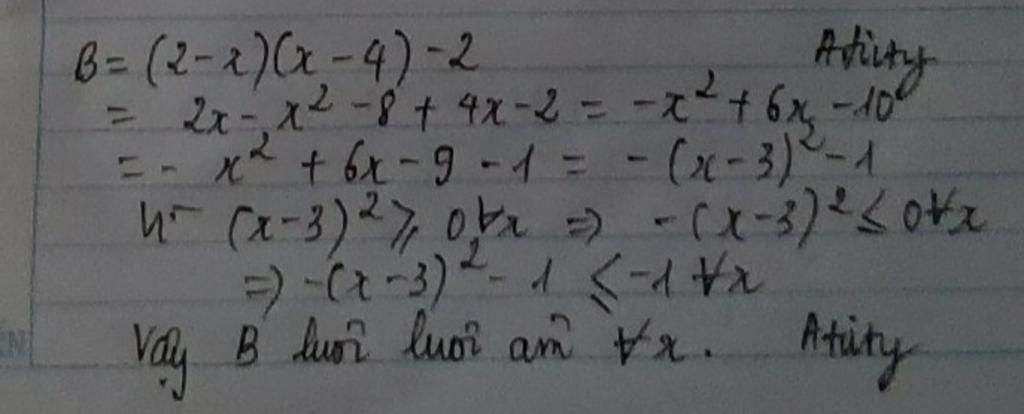 B = (2-x)(x-4)-2 Atiity
= 2x - x² - 8 + 4x - 2 = -x² + 6x - 10
= - x² + 6x - 9 - 1 = - (x-3)² - 1
Vì (x-3)² ≥ 0 ∀x ⇒ -(x-3)² ≤ 0 ∀x
⇒ -(x-3)² - 1 ≤ -1 ∀x
Vậy B luôn luôn âm ∀x. Atiity